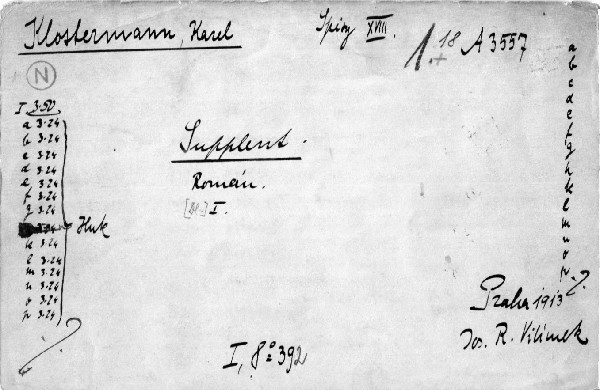 Klostermann, Karel
Spisy XVIII.
18 A 3557
N
I 3.50
a 3.24
b 3.24
c 3.24
d 3.24
e 3.24
f 3.24
g 3.24
k 3.24
l 3.24
m 3.24
n 3.24
o 3.24
p 3.24
Huk
Supplent.
Román.
I.
a
b
c
d
e
f
g
h
k
l
m
n
o
p
Praha 1913
Jos. R. Vilímek
I, 8° 392